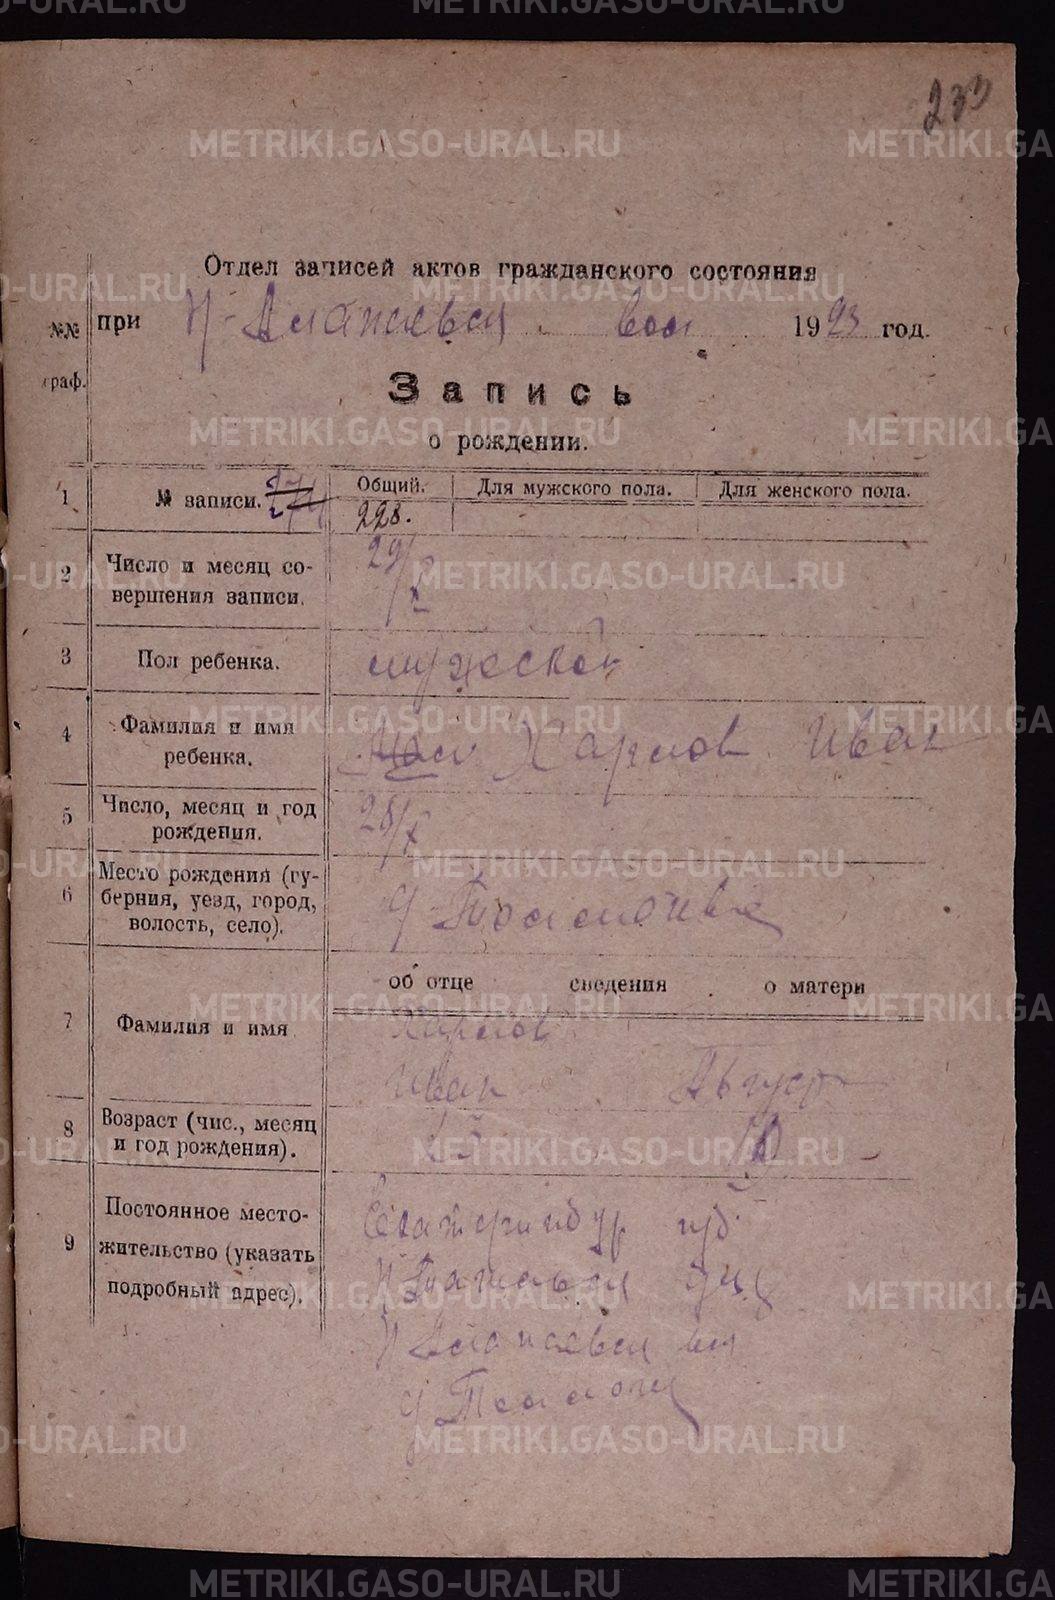 233
Отдел записей актов гражданского состояния
№№ граф.
при Н-Алапаевск вол 1923 год.
Запись
о рождении.
1 № записи. Общий. Для мужского пола. Для женского пола.
228.
2 Число и месяц совершения записи. 29/X
3 Пол ребенка. мужеской
4 Фамилия и имя ребенка. Харлов Иван
5 Число, месяц и год рождения. 28/X
6 Место рождения (губерния, уезд, город, волость, село).
об отце сведения о матери
7 Фамилия и имя Харлов
Иван Август
8 Возраст (чис., месяц и год рождения).
9 Постоянное местожительство (указать подробный адрес). Екатеринбур губ
Н Алапаевск вол
METRIKI.GASO-URAL.RU